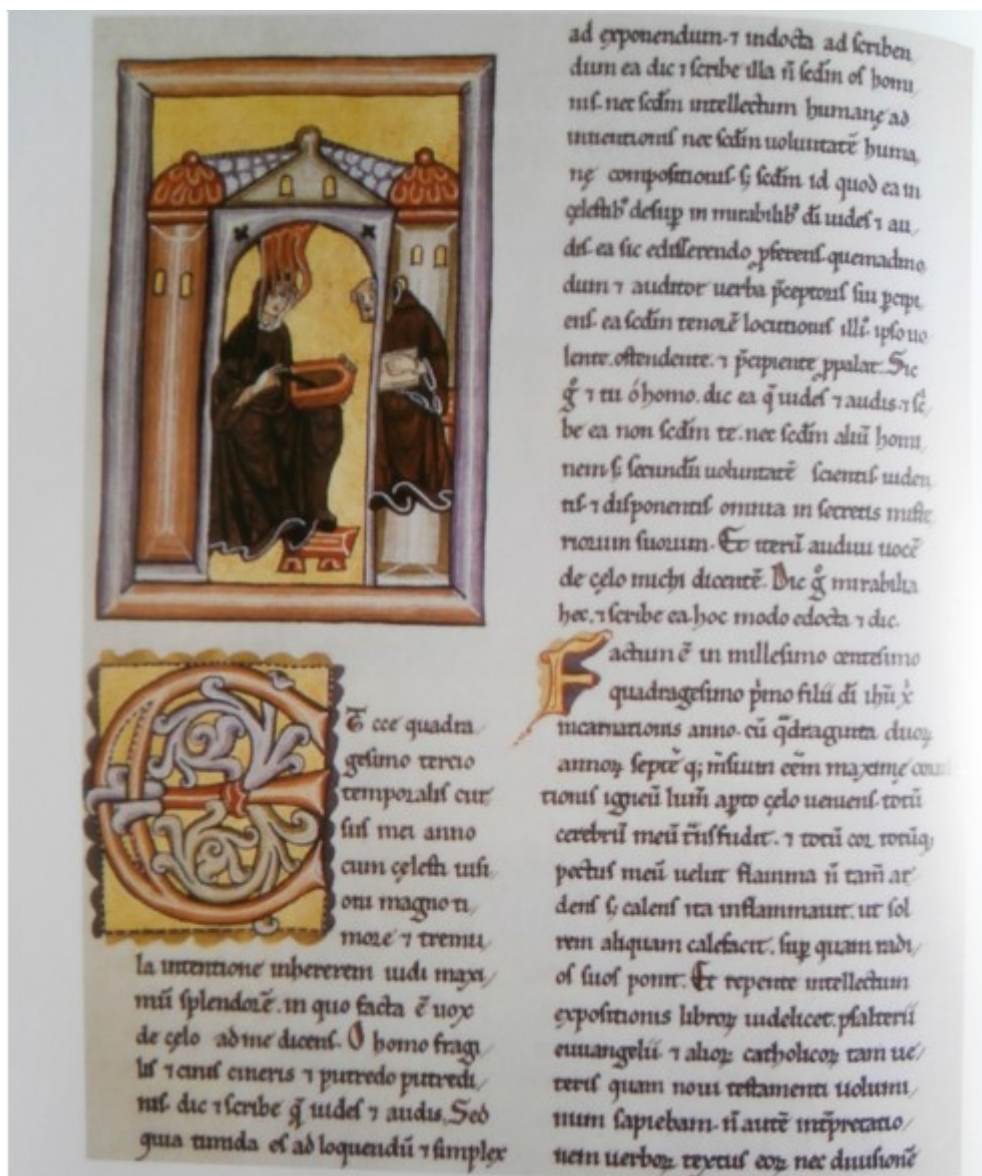 Et ecce quadra
gesimo tercio
temporalis cur
sus mei anno
cum cęlesti uisi
oni magno ti
more ⁊ tremu
la intentione inhererem uidi maxi
mū splendorē. in quo facta ē uox
de cęlo ad me dicens. O homo fragi
lis ⁊ cinis cineris ⁊ putredo putredi
nis. dic ⁊ scribe q̄ uides ⁊ audis. Sed
quia timida es ad loquendū ⁊ simplex
ad exponendum ⁊ indocta ad scriben
dum ea dic ⁊ scribe illa n̄ scdm os homi
nis. nec scdm intellectum humanę ad
inuentionis nec scdm uoluntatē huma
nę compositionis. s; scdm id quod ea in
cęlestib' desup in mirabilib' di uides ⁊ au
dis. ea sic edisserendo pferens. quemadmo
dum ⁊ auditor uerba pceptoris sui pcipi
ens. ea scdm tenorē locutionis illi' ipso uo
lente. ostendente. ⁊ pcipiente ppalat. Sic
g° ⁊ tu ó homo. dic ea q̄ uides ⁊ audis. ⁊ sc̄
be ea non scdm te. nec scdm aliū homi
nem s; secundū uoluntatē scientis uiden
tis ⁊ disponentis omnia in secretis miste
riorum suorum. Et iterū audiui uocē
de cęlo michi dicentē. Dic g° mirabilia
hec. ⁊ scribe ea hoc modo edocta ⁊ dic.
Factum ē in millesimo centesimo
quadragesimo p̍mo filii di ihu x̍
incarnationis anno. cū q̄draginta duoꝝ
annoꝝ septē q; m̄sium eēm maxime
tionis igneū lum̄ apto cęlo ueniens. totū
cerebrū meū t̄nsfudit. ⁊ totū cor totūq;
pectus meū uelut flamma n̄ tam̄ ar
dens s; calens ita inflammauit. ut sol
rem aliquam calefacit. sup quam radi
os suos ponit. Et repente intellectum
expositionis libroꝝ uidelicet. psalterii
euuangelii ⁊ alioꝝ catholicoꝝ tam ue
teris quam noui testamenti uolumi
num sapiebam. n̄ autē intpretatio
nem uerboꝝ textus eoꝝ nec diuisionē